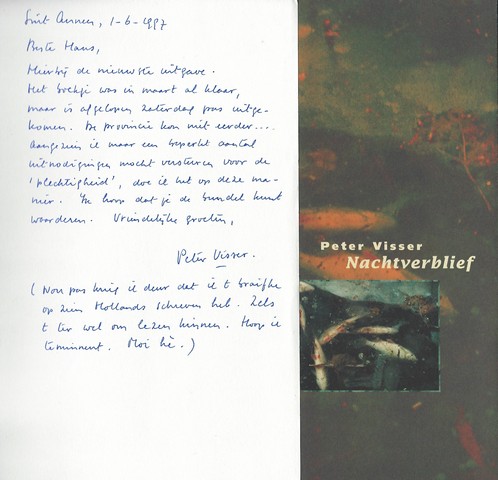 Sint Annen, 1-6-1997
Beste Hans,
Hierbij de nieuwste uitgave.
Het boekje was in maart al klaar,
maar is afgelopen zaterdag pas uitge-
komen. De provincie kon niet eerder....
Aangezien ik maar een beperkt aantal
uitnodigingen mocht versturen voor de
'plechtigheid', doe ik het op deze ma-
nier. Ik hoop dat je de bundel kunt
waarderen. Vriendelijke groeten,
Peter Visser.
(Nou pas krieg ik deur dat ik t braifke
op zien Hollands schreven heb. Zels
t ter wel om lezen kinnen. Hoop ik
teminnent. Moi hè.)
Peter Visser
Nachtverblief